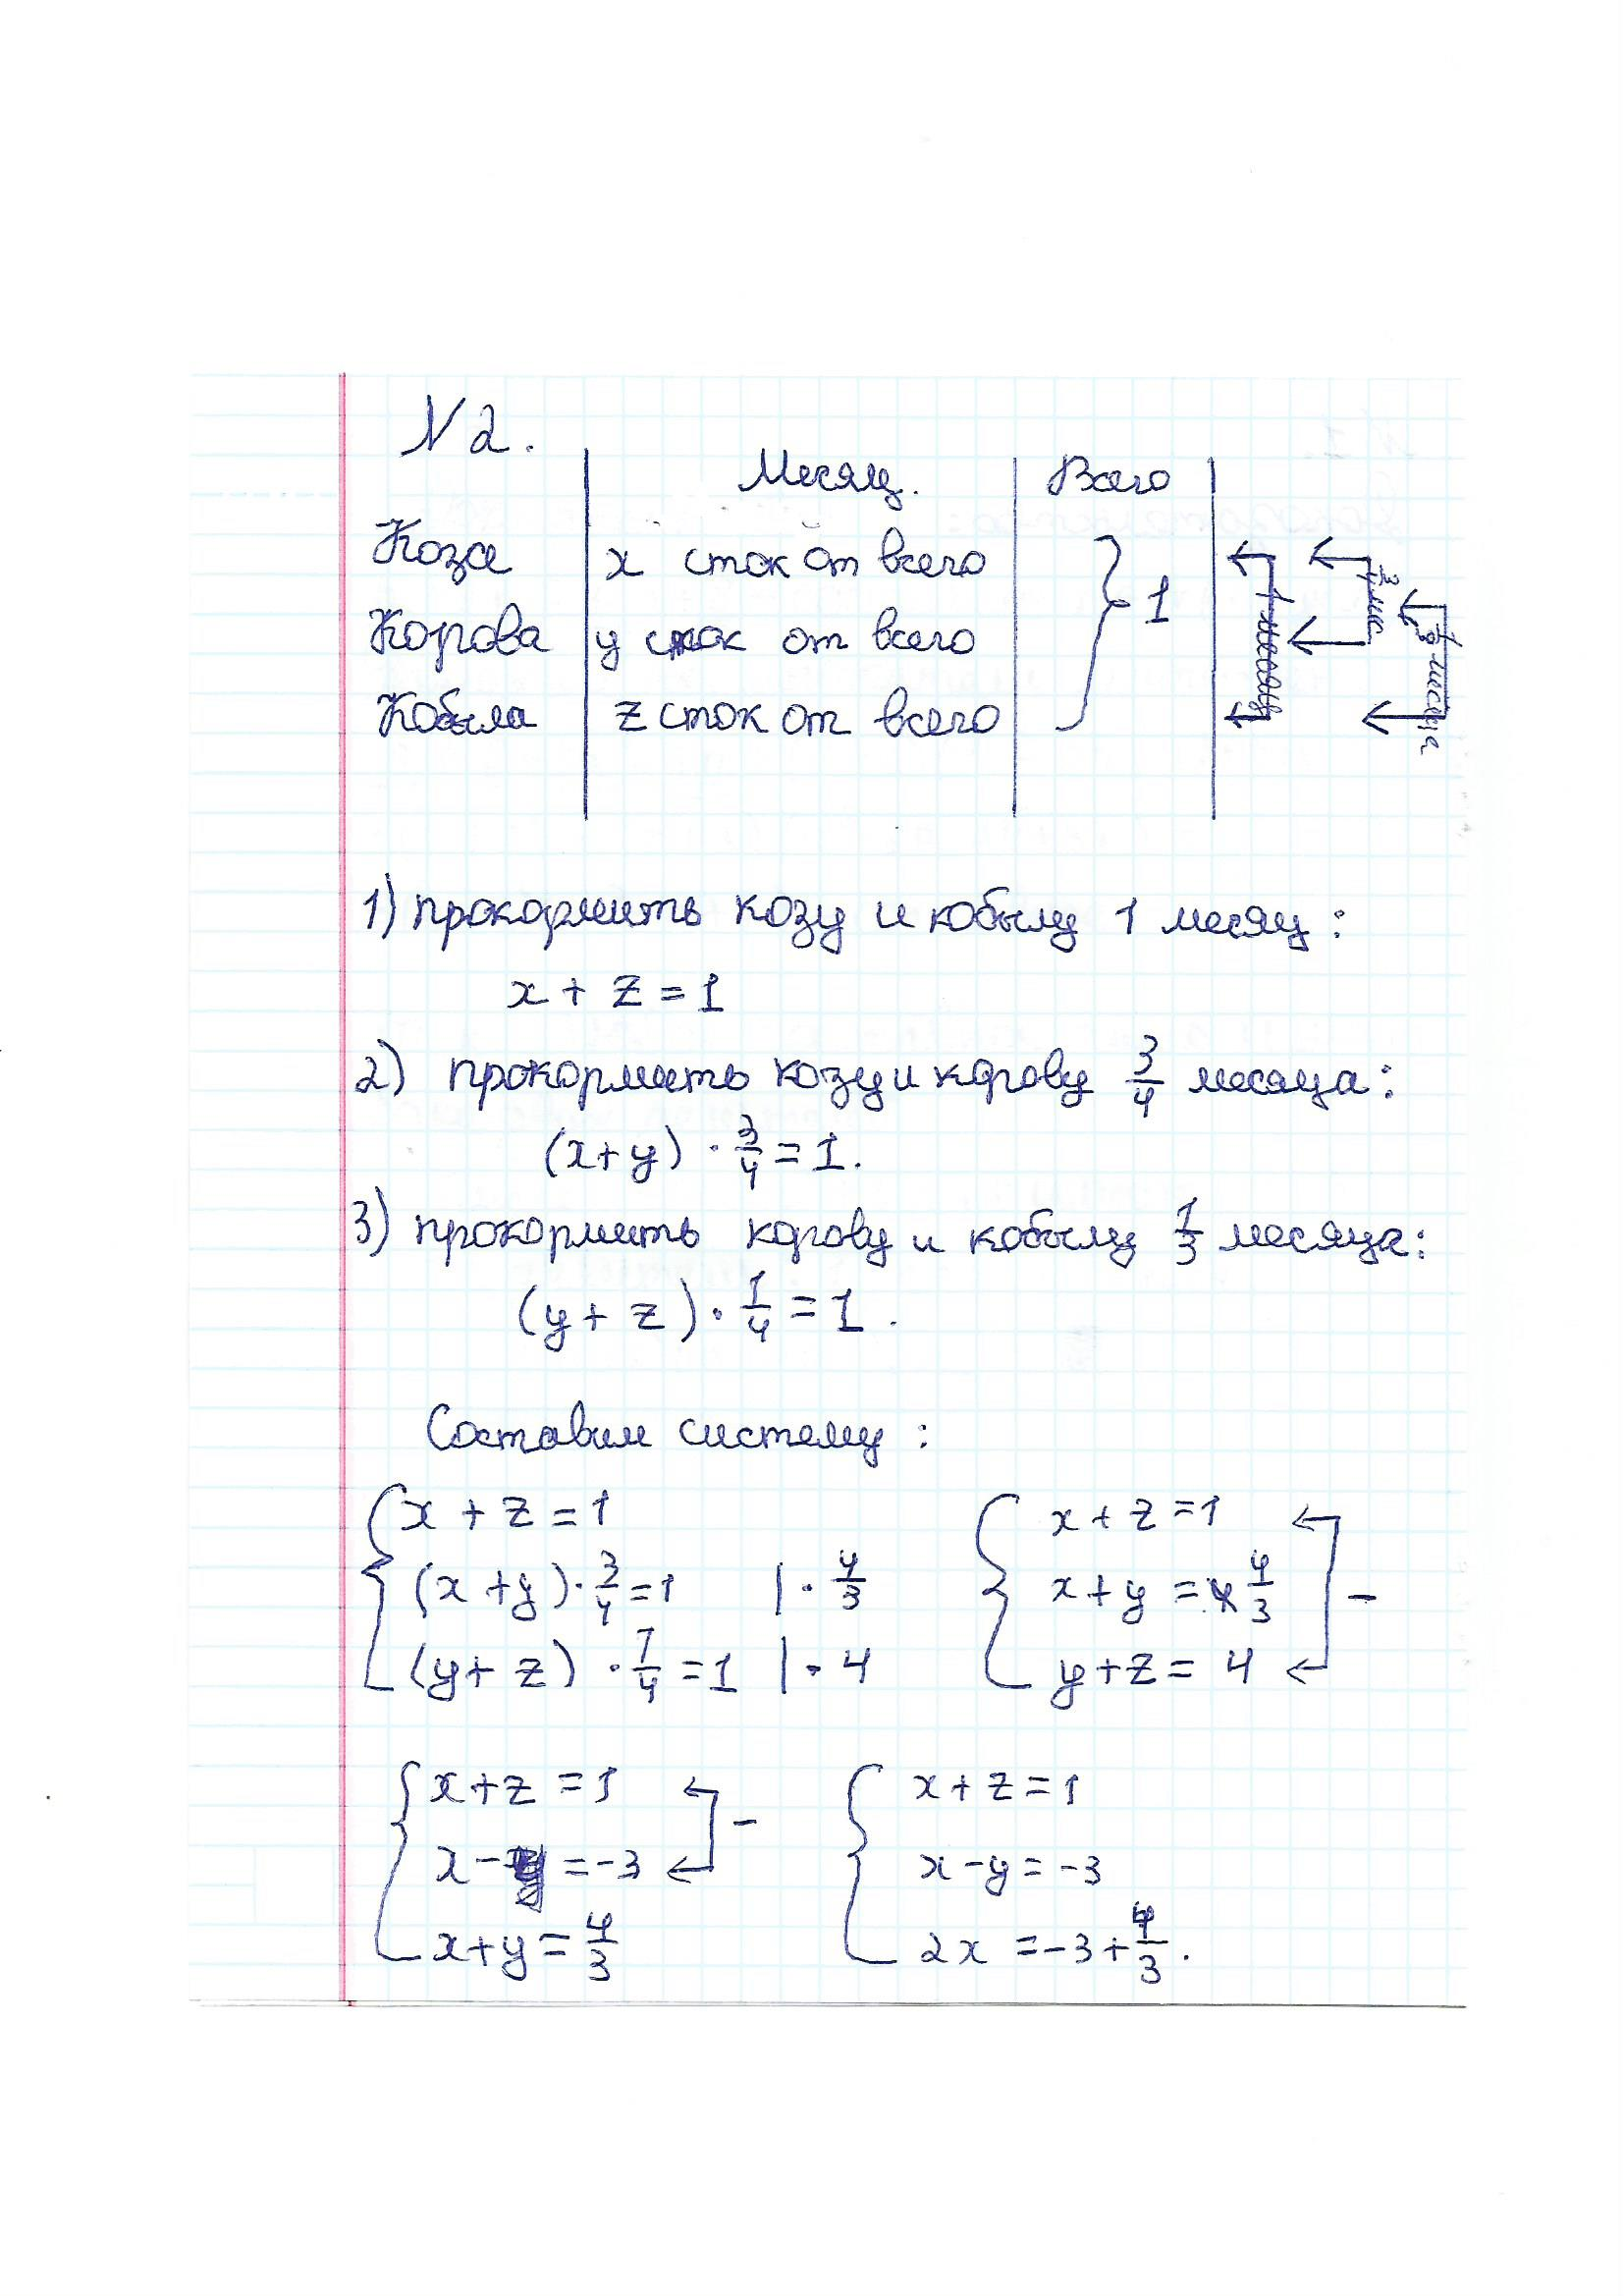 N 2.
Месяц. Всего
Коза x сток от всего
Корова y сток от всего } 1
Кобыла z сток от всего
1 месяц
3/4 мес.
1/3 месяца
1) прокормить козу и кобылу 1 месяц:
x + z = 1
2) прокормить козу и корову 3/4 месяца:
(x+y) · 3/4 = 1.
3) прокормить корову и кобылу 1/3 месяца:
(y + z) · 1/4 = 1.
Составим систему:
x + z = 1 x + z = 1
(x + y) · 3/4 = 1 | · 4/3 x + y = 4/3 -
(y + z) · 1/4 = 1 | · 4 y + z = 4
x + z = 1 - x + z = 1
x - y = -3 x - y = -3
x + y = 4/3 2x = -3 + 4/3.